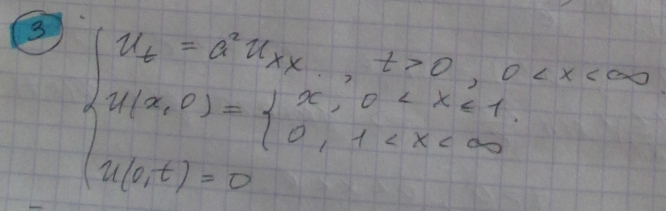 3
u_t = a² u_xx, t > 0, 0 < x < ∞.
u(x, 0) = { x, 0 < x ≤ 1.
0, 1 < x < ∞
u(0, t) = 0